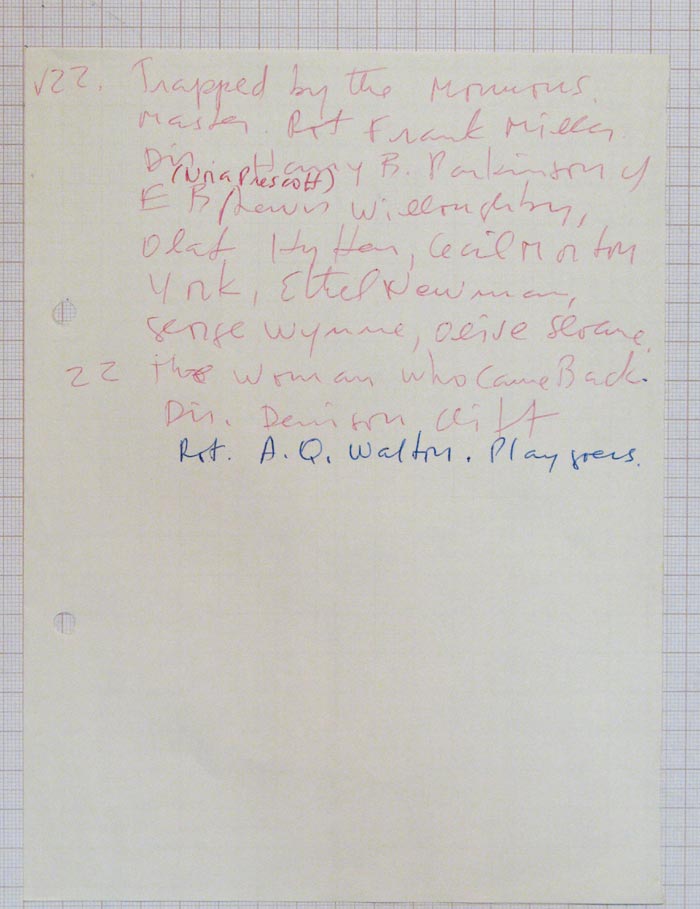 √22. Trapped by the Mormons.
Master. Rot Frank Miller
Dir. Harry B. Parkinson
(Nora Prescott)
E B / Lewis Willoughby,
Olaf Hytten, Cecil Morton
York, Ethel Newman,
George Wynne, Olive Sloane.
22 the Woman who Came Back.
Dir. Denison Clift
Rot. A. Q. Walton. Playgoers.